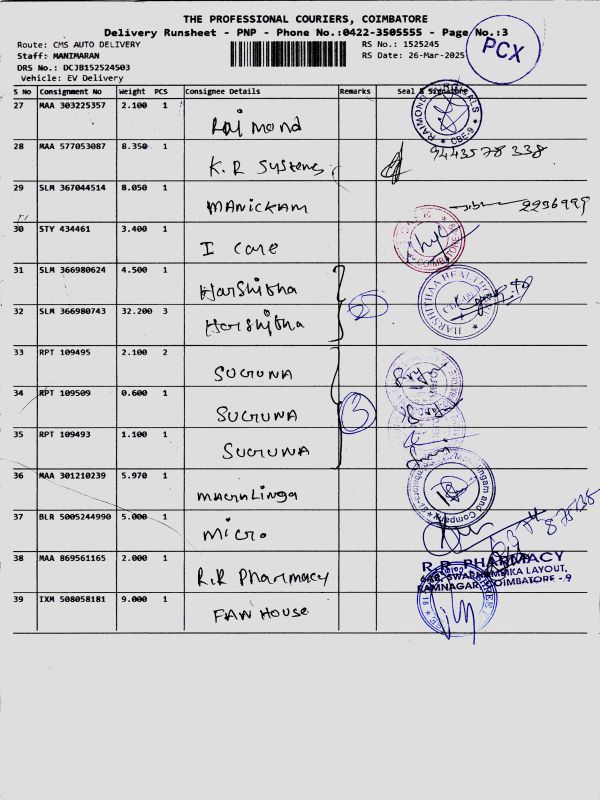 THE PROFESSIONAL COURIERS, COIMBATORE
Delivery Runsheet - PNP - Phone No.:0422-3505555 - Page No.:3
PCX
Route: CMS AUTO DELIVERY
RS No.: 1525245
Staff: MANIMARAN
RS Date: 26-Mar-2025
DRS No.: DCJB152524503
Vehicle: EV Delivery
S No Consignment No Weight PCS Consignee Details Remarks Seal & Signature
27 MAA 303225357 2.100 1 Raimond
28 MAA 577053087 8.350 1 K.R Systems 9443578338
29 SLM 367044514 8.050 1 MANICKAM 2236999
30 STY 434461 3.400 1 I care
COIMBATORE
31 SLM 366980624 4.500 1 Harshitha
32 SLM 366980743 32.200 3 Harshitha
HARSHITHAA HEALTH
33 RPT 109495 2.100 2 SUGUNA
34 RPT 109509 0.600 1 SUGUNA 3
35 RPT 109493 1.100 1 SUGUNA
36 MAA 301210239 5.970 1 magalinga
37 BLR 5005244990 5.000 1 micro
38 MAA 869561165 2.000 1 R.R Pharmacy
R.R. PHARMACY
LAYOUT,
RAMNAGAR, COIMBATORE - 9
39 IXM 508058181 9.000 1 FAN HOUSE